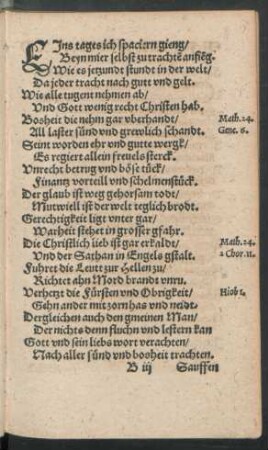 EIns tages ich spaciern gieng/
Beyn mier selbst zu trachtē anfiēg.
Wie es jetzundt stundt in der welt/
Da jeder tracht nach gutt vnd gelt.
Wie alle tugent nehmen ab/
Vnd Gott wenig recht Christen hab.
Bosheit die nehm gar vberhandt/ Math. 24.
All laster sünd vnd grewlich schandt. Gene. 6.
Seint worden ehr vnd gutte werck/
Es regiert allein freuels sterck.
Vnrecht betrug vnd böse tück/
Finantz vorteill vnd schelmenstück.
Der glaub ist weg gehorsam todt/
Mutwiell ist der welt teglich brodt.
Gerechtigkeit ligt vnter gar/
Warheit stehet in grosser gfahr.
Die Christlich lieb ist gar erkaldt/ Math. 24.
Vnd der Sathan in Engels gstalt. 2 Chor. 11.
Fuhret die Leutt zur Hellen zu/
Richtet ahn Mord brandt vnru.
Verhetzt die Fürsten vnd Obrigkeit/ Hiob 1.
Gehn ander mit zorn has vnd neidt.
Dergleichen auch den gmeinen Man/
Der nichts denn fluchn vnd lestern kan
Gott vnd sein liebs wort verachten/
Nach aller sünd vnd boßheit trachten.
B iij Sauffen